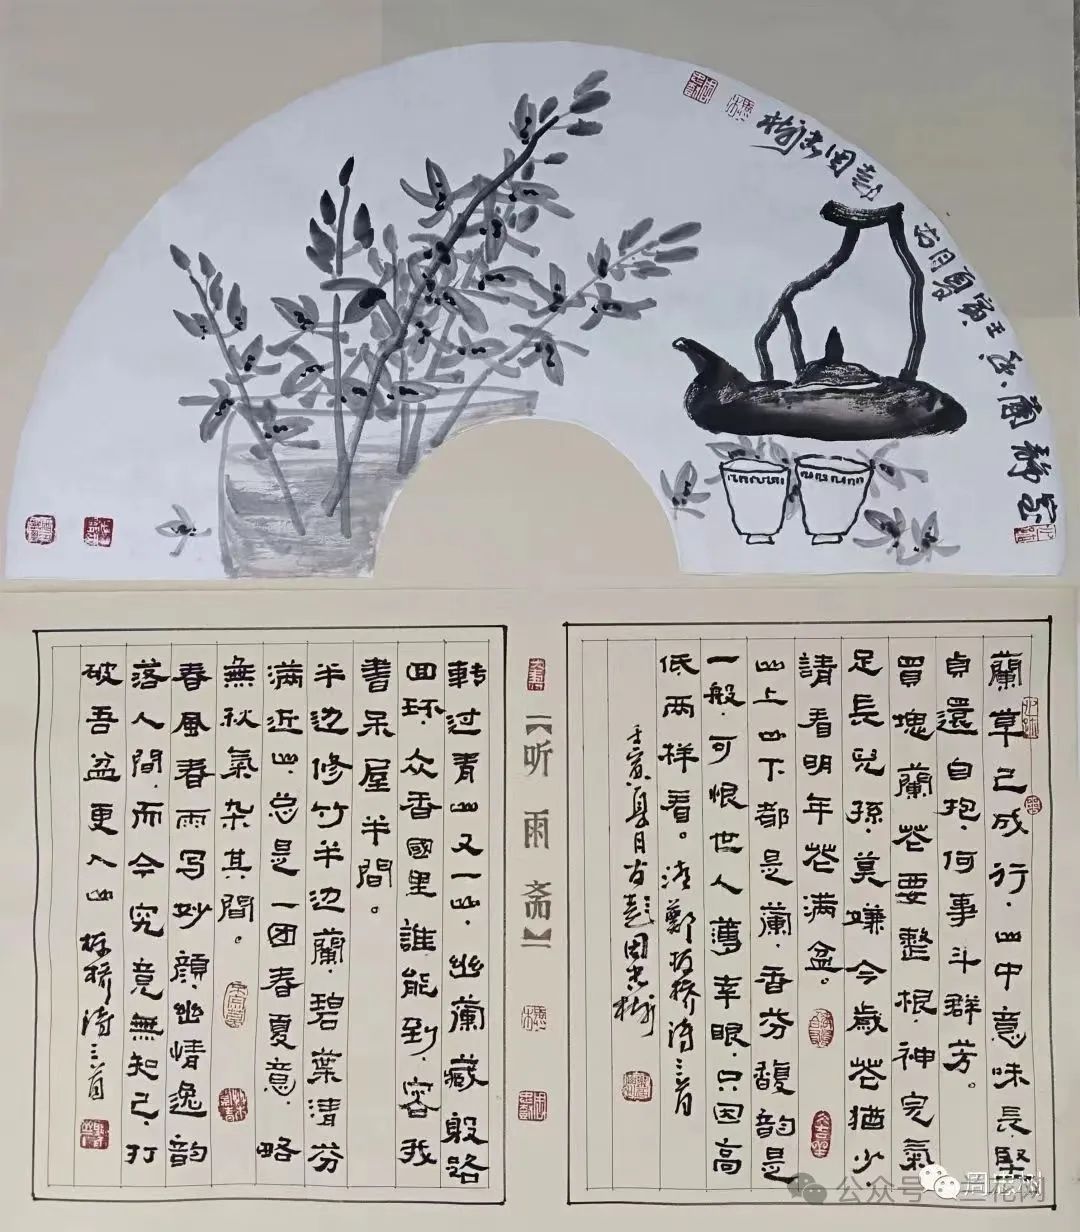 室静蘭香 壬寅夏月 古彭周
蘭草已成行，山中意味長，堅
貞還自抱，何事斗群芳。
買塊蘭花要整根，神完氣
足長兒孫，莫嫌今歲花猶少，
請看明年花满盆。
山上山下都是蘭，香芬馥韵是
一般，可恨世人薄幸眼，只因高
低两样看。清鄭板桥诗三首
壬寅夏月古彭周
【听雨斋】
转过青山又一山，幽蘭藏躲路
回环，众香國里誰能到，容我
書呆屋半間。
半边修竹半边蘭，碧葉清芬
满近山，总是一团春夏意，略
無秋氣杂其間。
春風春雨写妙顔，幽情逸韵
落人間，而今究竟無知己，打
破吾盆更入山 板桥诗三首
公众号